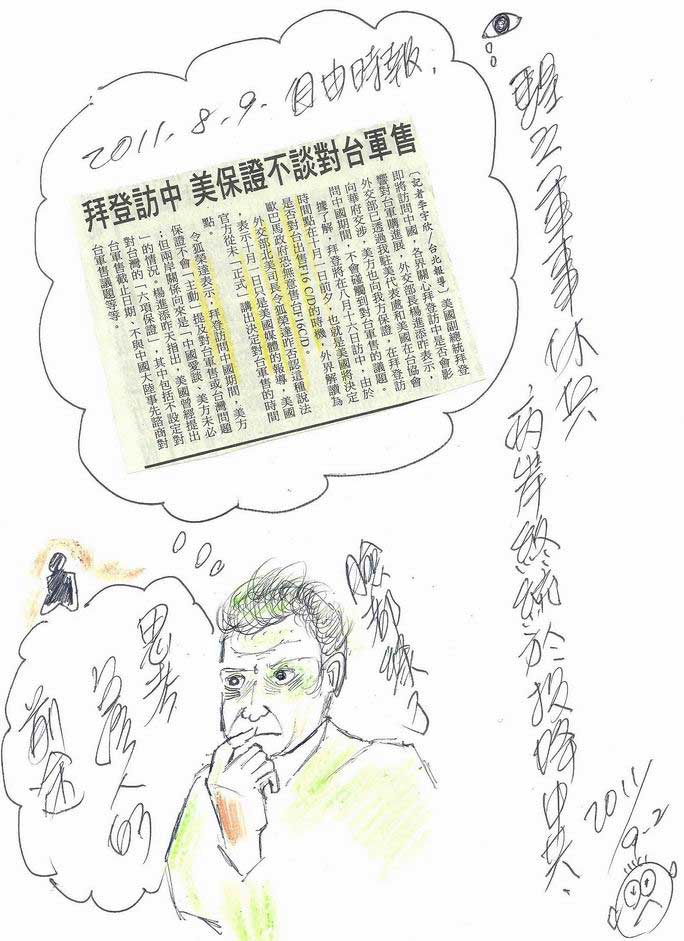 2011.8.9.自由時報.
拜登訪中 美保證不談對台軍售
〔記者李宇欣/台北報導〕美國副總統拜登
即將訪問中國，各界關心拜登訪中是否會影
響對台軍購進展，外交部長楊進添昨表示，
外交部已透過我駐美代表處和美國在台協會
向華府交涉，美方也向我方保證，在拜登訪
問中國期間，不會碰觸到對台軍售的議題。
據了解，拜登將在八月十六日訪中，由於
時間點在十月一日前夕，也就是美國將決定
是否對台出售F16 C/D的時機，外界解讀為
歐巴馬政府恐無意售台F16C/D。
外交部北美司長令狐榮達昨否認這種說法
，表示十月一日只是美國媒體的報導，美國
官方從未「正式」講出決定對台軍售的時間
點。
令狐榮達表示，拜登訪問中國期間，美方
保證不會「主動」提及對台軍售或台灣問題
；但兩岸關係向來是「中國愛談、美方未必
」的情況。楊進添昨天指出，美國曾經提出
對台灣的「六項保證」，其中包括不設定對
台軍售截止日期、不與中國大陸事先諮商對
台軍售議題等等。
之軍事休兵
兩岸終統於投降中共.
臉都綠了
思考
台灣人的
前途
2011/9-2